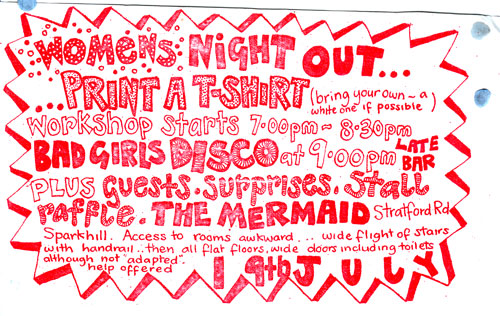 WOMENS NIGHT OUT...
...PRINT A T-SHIRT (bring your own ~ a
white one if possible)
WORKSHOP STARTS 7.00pm ~ 8.30pm
BAD GIRLS DISCO at 9.00pm LATE
BAR
PLUS guests. surprises. Stall
raffle. THE MERMAID Stratford Rd
Sparkhill. Access to rooms awkward... wide flight of stairs
with handrail..then all flat floors, wide doors including toilets
although not "adapted".
help offered
19th JULY